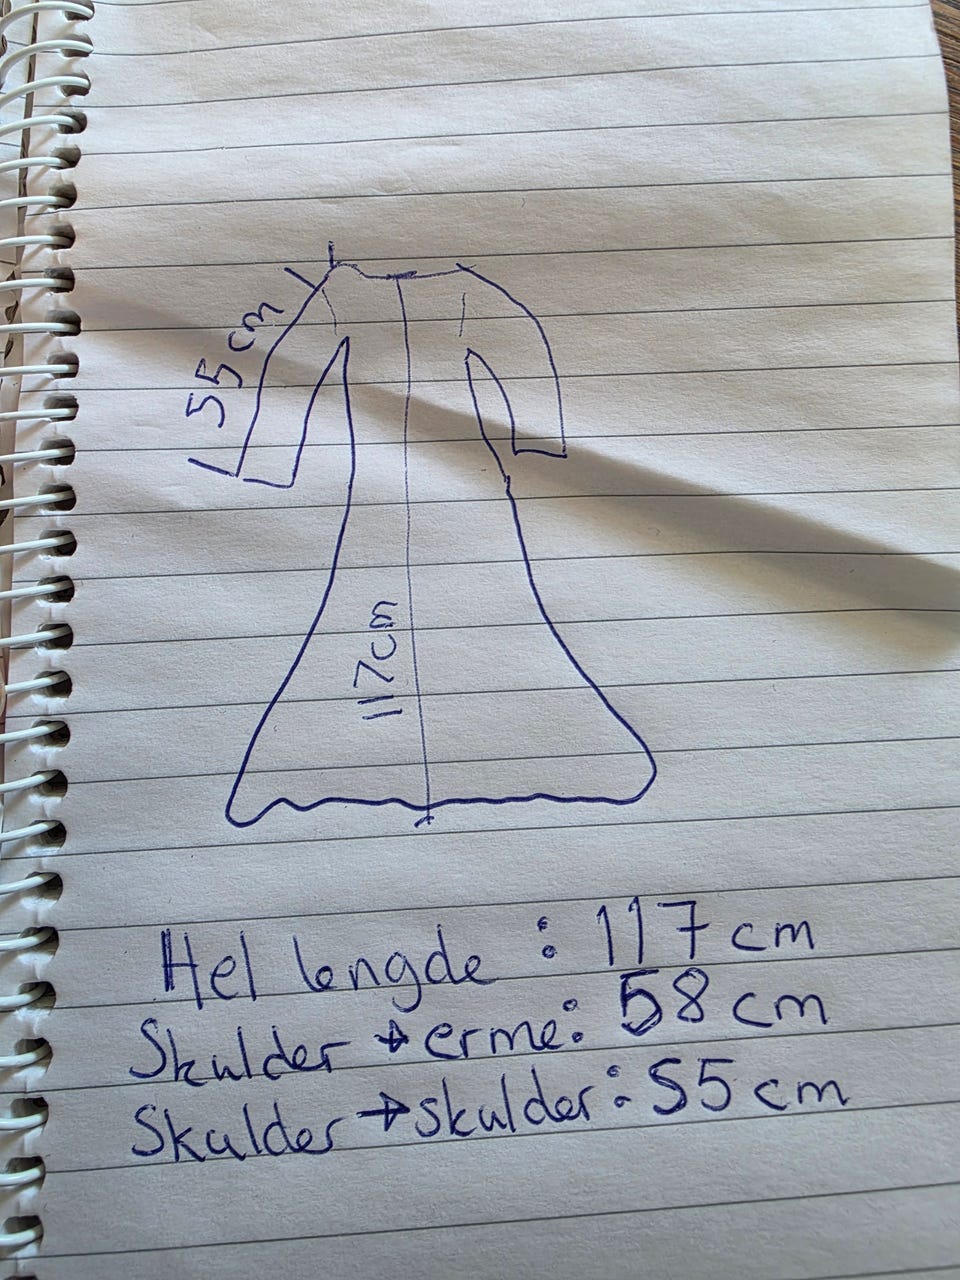 55 cm
117cm
Hel lengde : 117 cm
Skulder → erme: 58 cm
Skulder → skulder: 55 cm